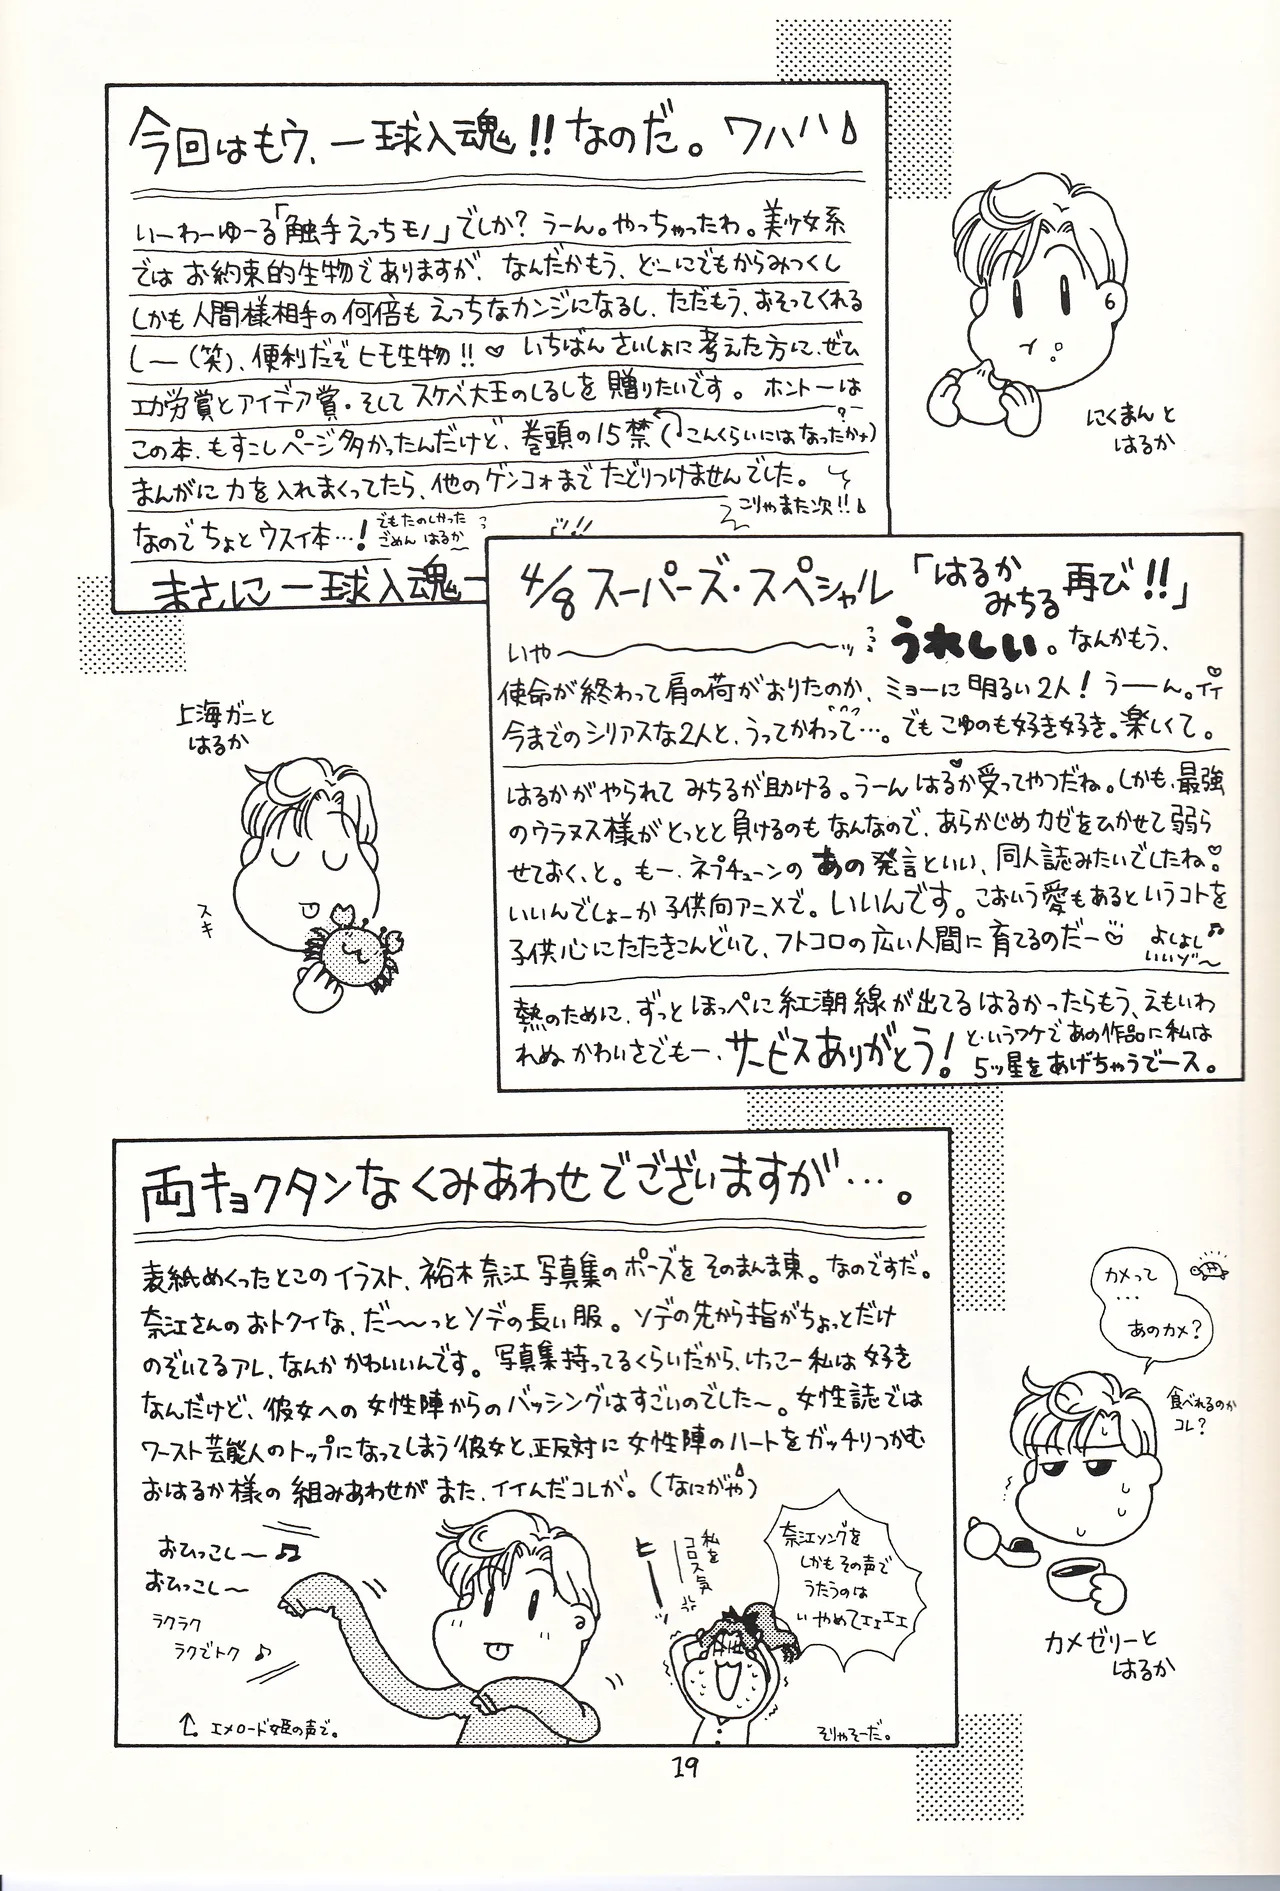 今回はもウ、一球入魂!!なのだ。ワハハ♪
いーわーゆーる「触手えっちモノ」でしか?うーん。やっちゃったわ。美少女系
ではお約束的生物でありますが、なんだかもう、どーにでもからみつくし
しかも人間様相手の何倍もえっちなカンジになるし、ただもう、おそってくれる
しー(笑)、便利だぞヒモ生物!!♡ いちばんさいしょに考えた方に、ぜひ
エガ労賞とアイデア賞・そしてスケベ大王のしるしを贈りたいです。ホントーは
この本、もすこしページ多かったんだけど、巻頭の15禁(こんくらいにはなったかナ?)
まんがに力を入れまくってたら、他のゲンコォまでたどりつけませんでした。
なのでちょとウスイ本…!
でもたのしかった
ごめん はるか〜
こりゃまた次!!♪
まさに一球入魂ー
にくまんと
はるか
4/8スーパーズ・スペシャル「はるかみちる再び!!」
いや〜〜ッ うれしい。なんかもう、
使命が終わって肩の荷がおりたのか、ミョーに明るい2人!うーん。イイ♡
今までのシリアスな2人と、うってかわって…。でもこゆのも好き好き。楽しくて。
はるかがやられてみちるが助ける。うーんはるか受ってやつだね。♡しかも、最強
のウラヌス様がとっとと負けるのもなんなので、あらかじめカゼをひかせて弱ら
せておく、と。もー、ネプチューンのあの発言といい、同人誌みたいでしたね♡
いいんでしょーか子供向アニメで。いいんです。こおいう愛もあるというコトを
子供心にたたきこんどいて、フトコロの広い人間に育てるのだー♡ よしよし♪
いいゾ〜
熱のために、ずっとほっぺに紅潮線が出てるはるかったらもう、えもいわ
れぬかわいさでもー、サービスありがとう!というワケであの作品に私は
5ッ星をあげちゃうでース。
上海ガニと
はるか
スキ
両キョクタンなくみあわせでございますが…。
表紙めくったとこのイラスト、裕木奈江写真集のポーズをそのまんま東。なのですだ。
奈江さんのおトクイな、だ〜〜っとソデの長い服。ソデの先から指がちょっとだけ
のぞいてるアレ、なんかかわいいんです。写真集持ってるくらいだから、けっこー私は好き
なんだけど、彼女への女性陣からのバッシングはすごいのでした〜。女性誌では
ワースト芸能人のトップになってしまう彼女と、正反対に女性陣のハートをガッチリつかむ
おはるか様の組みあわせがまた、イイんだコレが。(なにがや♪)
おひっこし〜♫
おひっこし〜
ラクラク
ラクでトク♪
エメロード姫の声で。
ヒーーッ
私を
コロス気
奈江ソングを
しかもその声で
うたうのは
いやめてェェェェ
そりゃそーだ。
カメって
…
あのカメ?
食べれるのか
コレ?
カメゼリーと
はるか
19